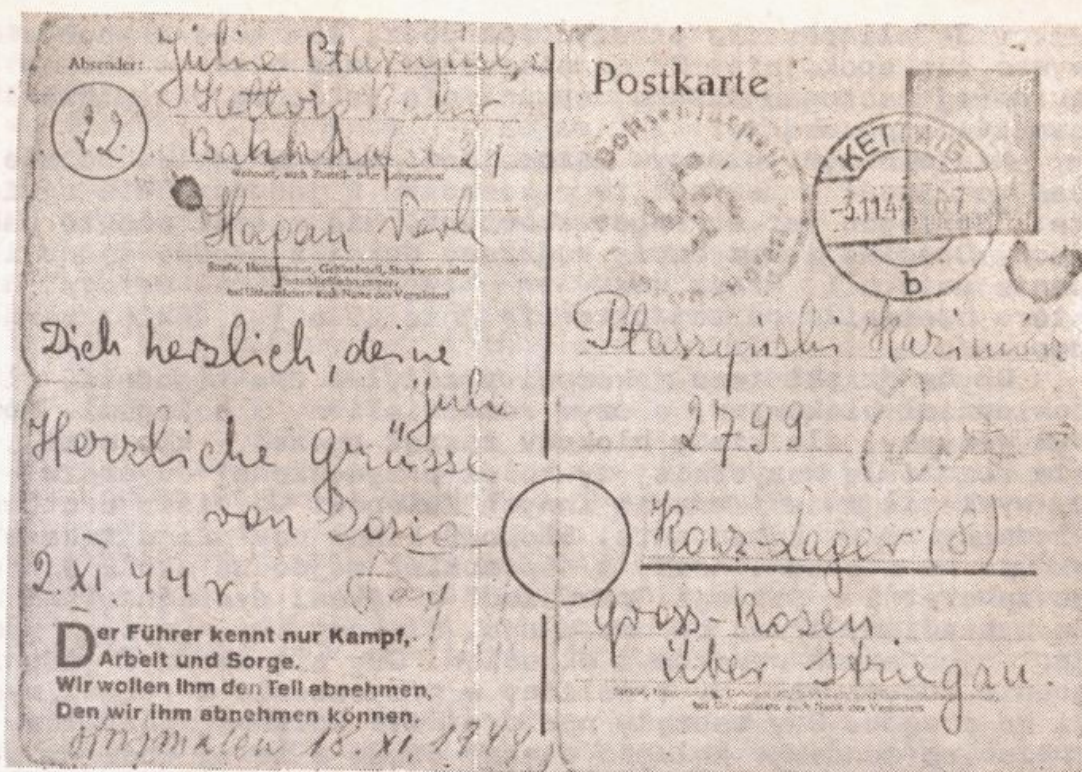 Absender: Julie Ptaszyńska
Kettwig Ruhr
Bahnhofst 21
Wohnort, auch Zustell- oder Leitpostamt
22
Straße, Hausnummer, Gebäudeteil, Stockwerk oder
Postschließfachnummer;
bei Untermietern auch Name des Vermieters
Dich herzlich, deine
Julie
Herzliche Grüsse
von Zosia
2.XI.44 r
Der Führer kennt nur Kampf,
Arbeit und Sorge.
Wir wollen ihm den Teil abnehmen,
Den wir ihm abnehmen können.
18.XI.1944
Postkarte
KETTWIG
-3.11.4
b
Ptaszyński Kazimierz
2799
Konz-Lager (8)
Gross-Rosen
über Striegau.
Straße, Hausnummer, Gebäudeteil, Stockwerk oder Postschließfachnummer;
bei Untermietern auch Name des Vermieters